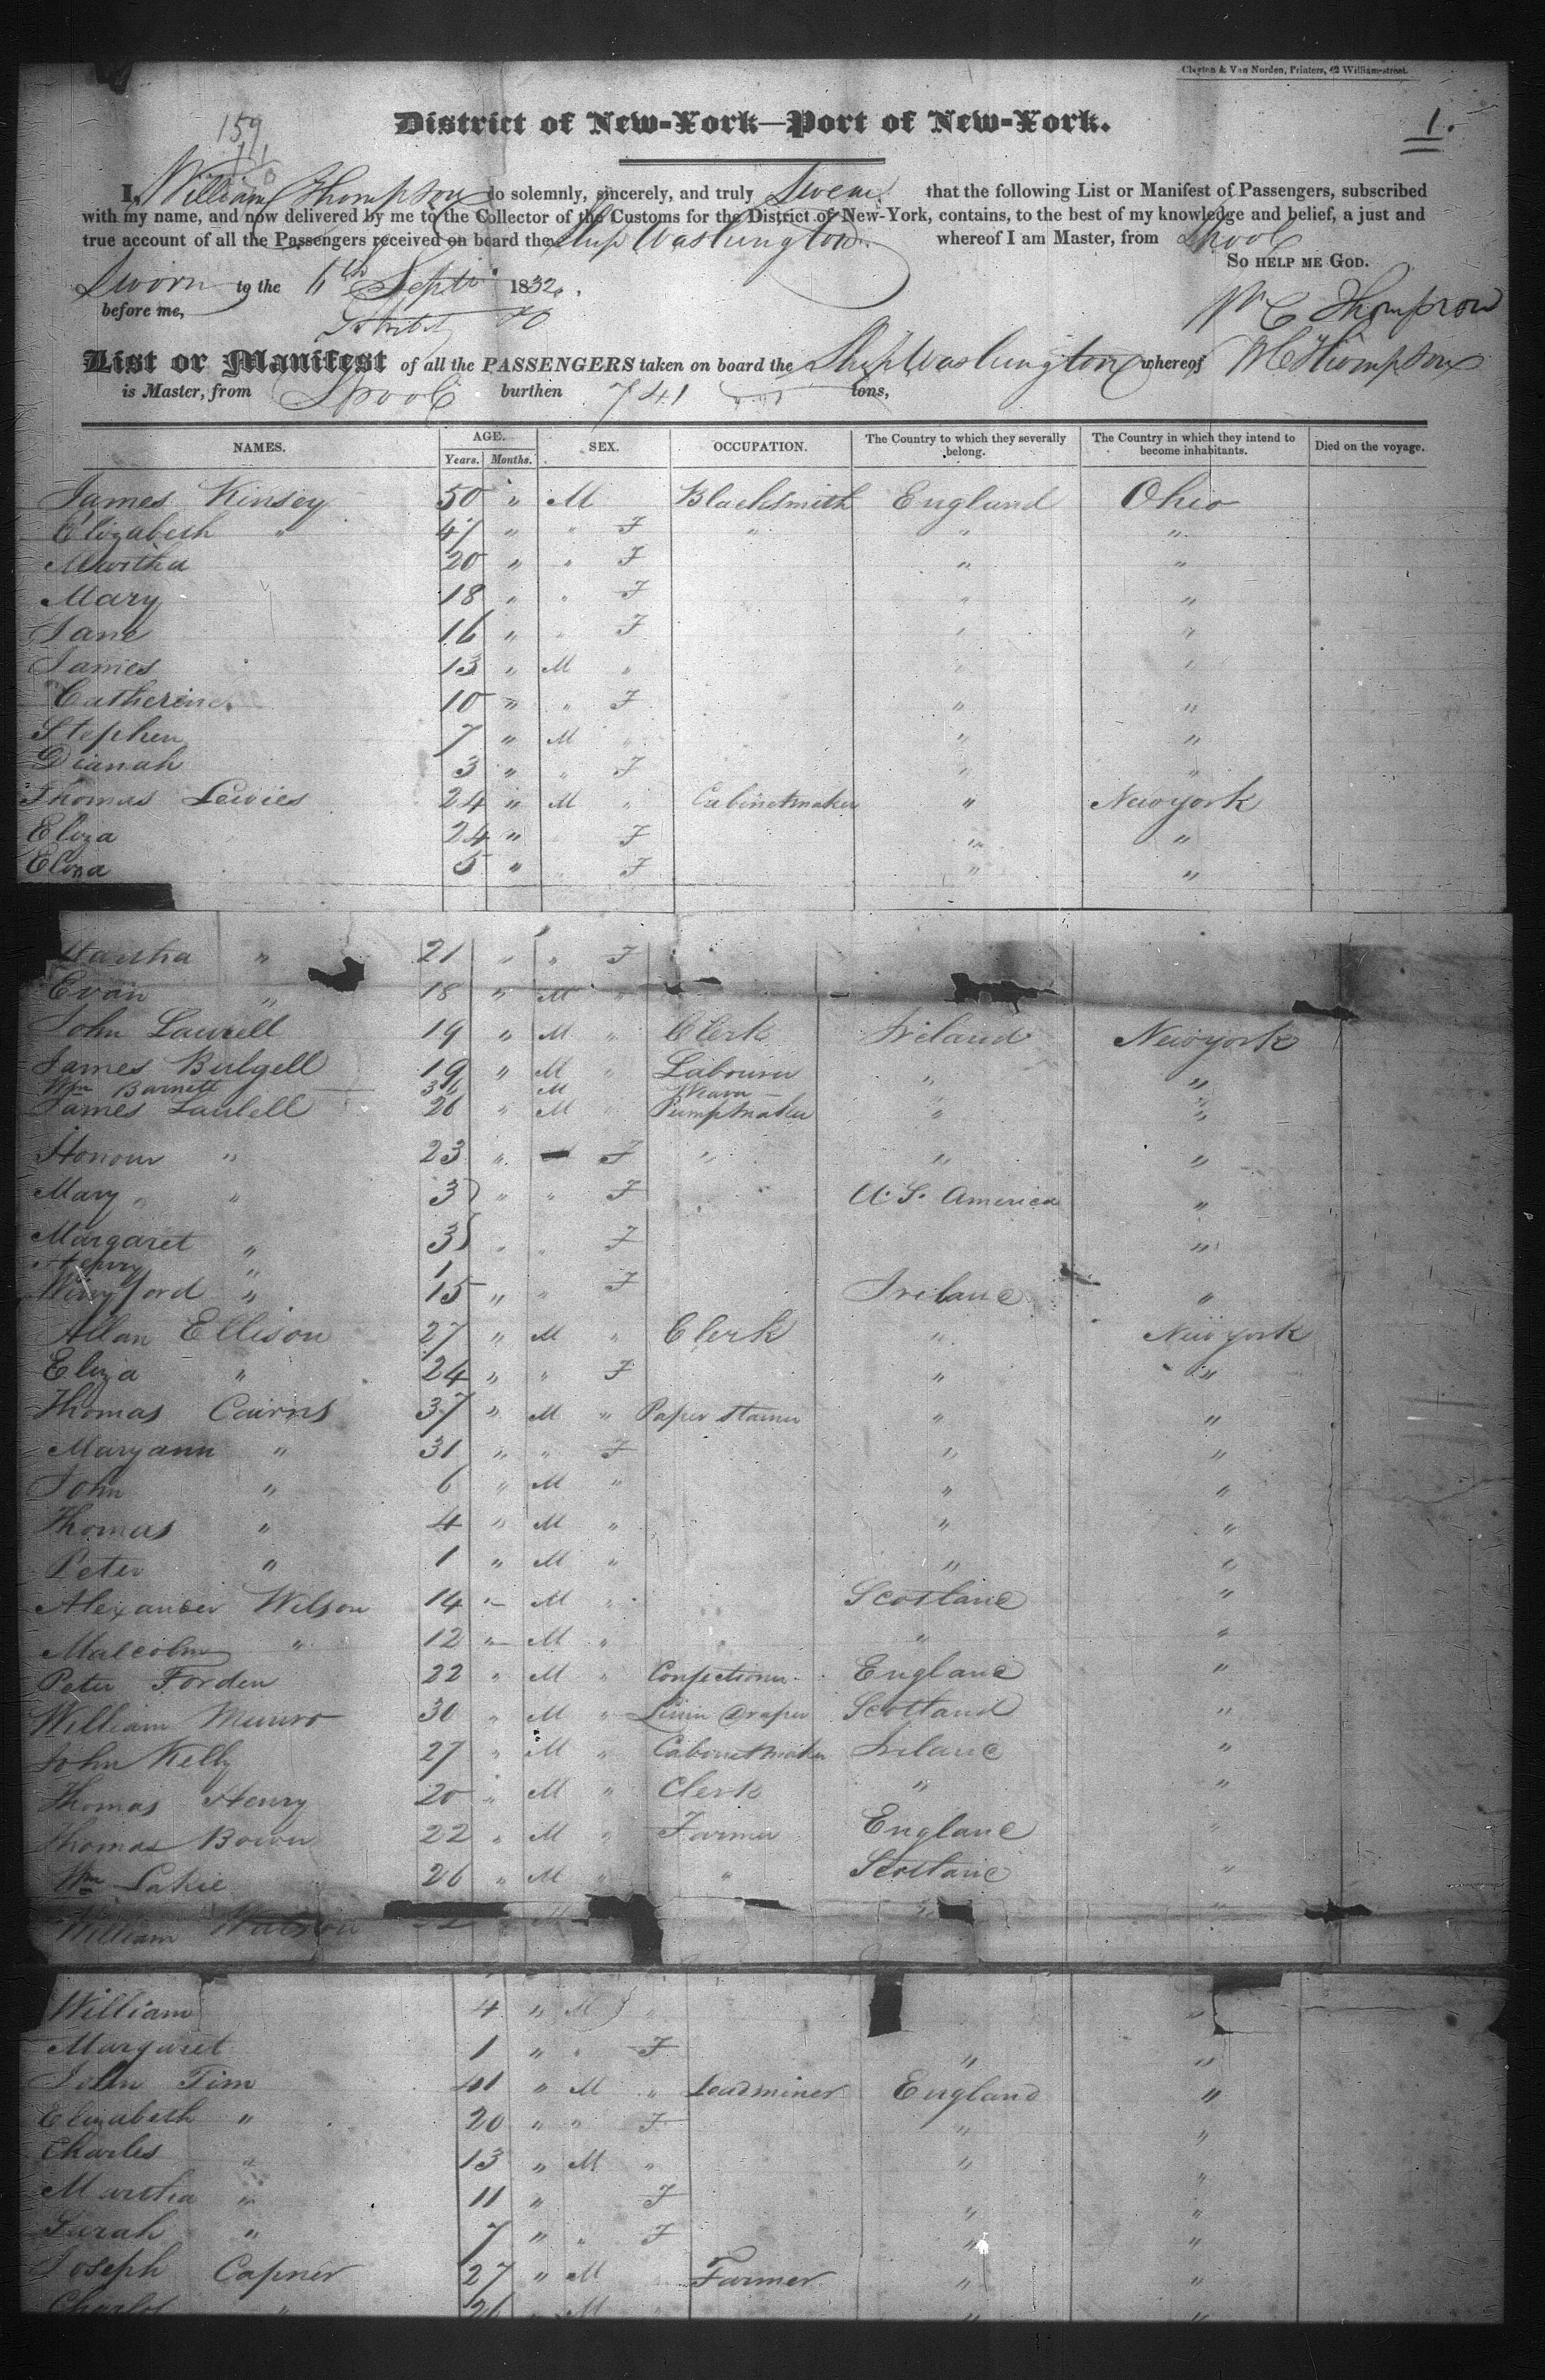 Clayton & Van Norden, Printers, 42 William-street.
159
District of New-York—Port of New-York.
1.
I, William Thompson do solemnly, sincerely, and truly Swear that the following List or Manifest of Passengers, subscribed
with my name, and now delivered by me to the Collector of the Customs for the District of New-York, contains, to the best of my knowledge and belief, a just and
true account of all the Passengers received on board the Ship Washington whereof I am Master, from Lpool
So help me God.
Sworn to the Septr 1832.
before me,
Wm C Thompson
List or Manifest of all the PASSENGERS taken on board the Ship Washington whereof W C Thompson
is Master, from Lpool burthen 741 tons,
NAMES. AGE. SEX. OCCUPATION. The Country to which they severally belong. The Country in which they intend to become inhabitants. Died on the voyage.
Years. Months.
James Kinsey 50 " M Blacksmith England Ohio
Elizabeth " 47 " " F " " "
Martha 20 " " F " "
Mary 18 " " F " "
Jane 16 " " F " "
James 13 " M " " "
Catherine 10 " " F " "
Stephen 7 " M " " "
Dianah 3 " " F " "
Thomas Lewies 24 " M " Cabinetmaker " New york
Eliza 24 " " F " "
Eliza 5 " " F " "
Martha " 21 " " F
Evan " 18 " M "
John Laurell 19 " M " Clerk Ireland New york
James Bulgell 19 " M " Labourer " "
Wm Barnett M
James Laulell 26 " M " Pumpmaker " "
Honour " 23 " F " " "
Mary " 3 " " F U. S. America "
Margaret " 3 " " F "
Henry " 1
Winyford " 15 " " F Ireland "
Allan Ellison 27 " M " Clerk " New york
Eliza " 24 " " F " "
Thomas Cairns 37 " M " Paper Stainer " "
Maryann " 31 " " F " "
John " 6 " M " " "
Thomas " 4 " M " " "
Peter " 1 " M " " "
Alexander Wilson 14 " M " Scotland "
Malcolm " 12 " M " " "
Peter Forden 22 " M " Confectioner England "
William Munro 30 " M " Linin Draper Scotland "
John Kelly 27 " M " Cabinetmaker Ireland "
Thomas Henry 20 " M " Clerk " "
Thomas Bown 22 " M " Farmer England "
Wm Lakie 26 " M " " Scotland "
William Watson M " "
William 4 " M " "
Margaret 1 " " F " "
John Tim 41 " M " Leadminer England "
Elizabeth " 20 " " F " "
Charles " 13 " M " " "
Martha " 11 " F " "
Sarah " 7 " " F " "
Joseph Capner 27 " M Farmer " "
Charles " 26 " M " "